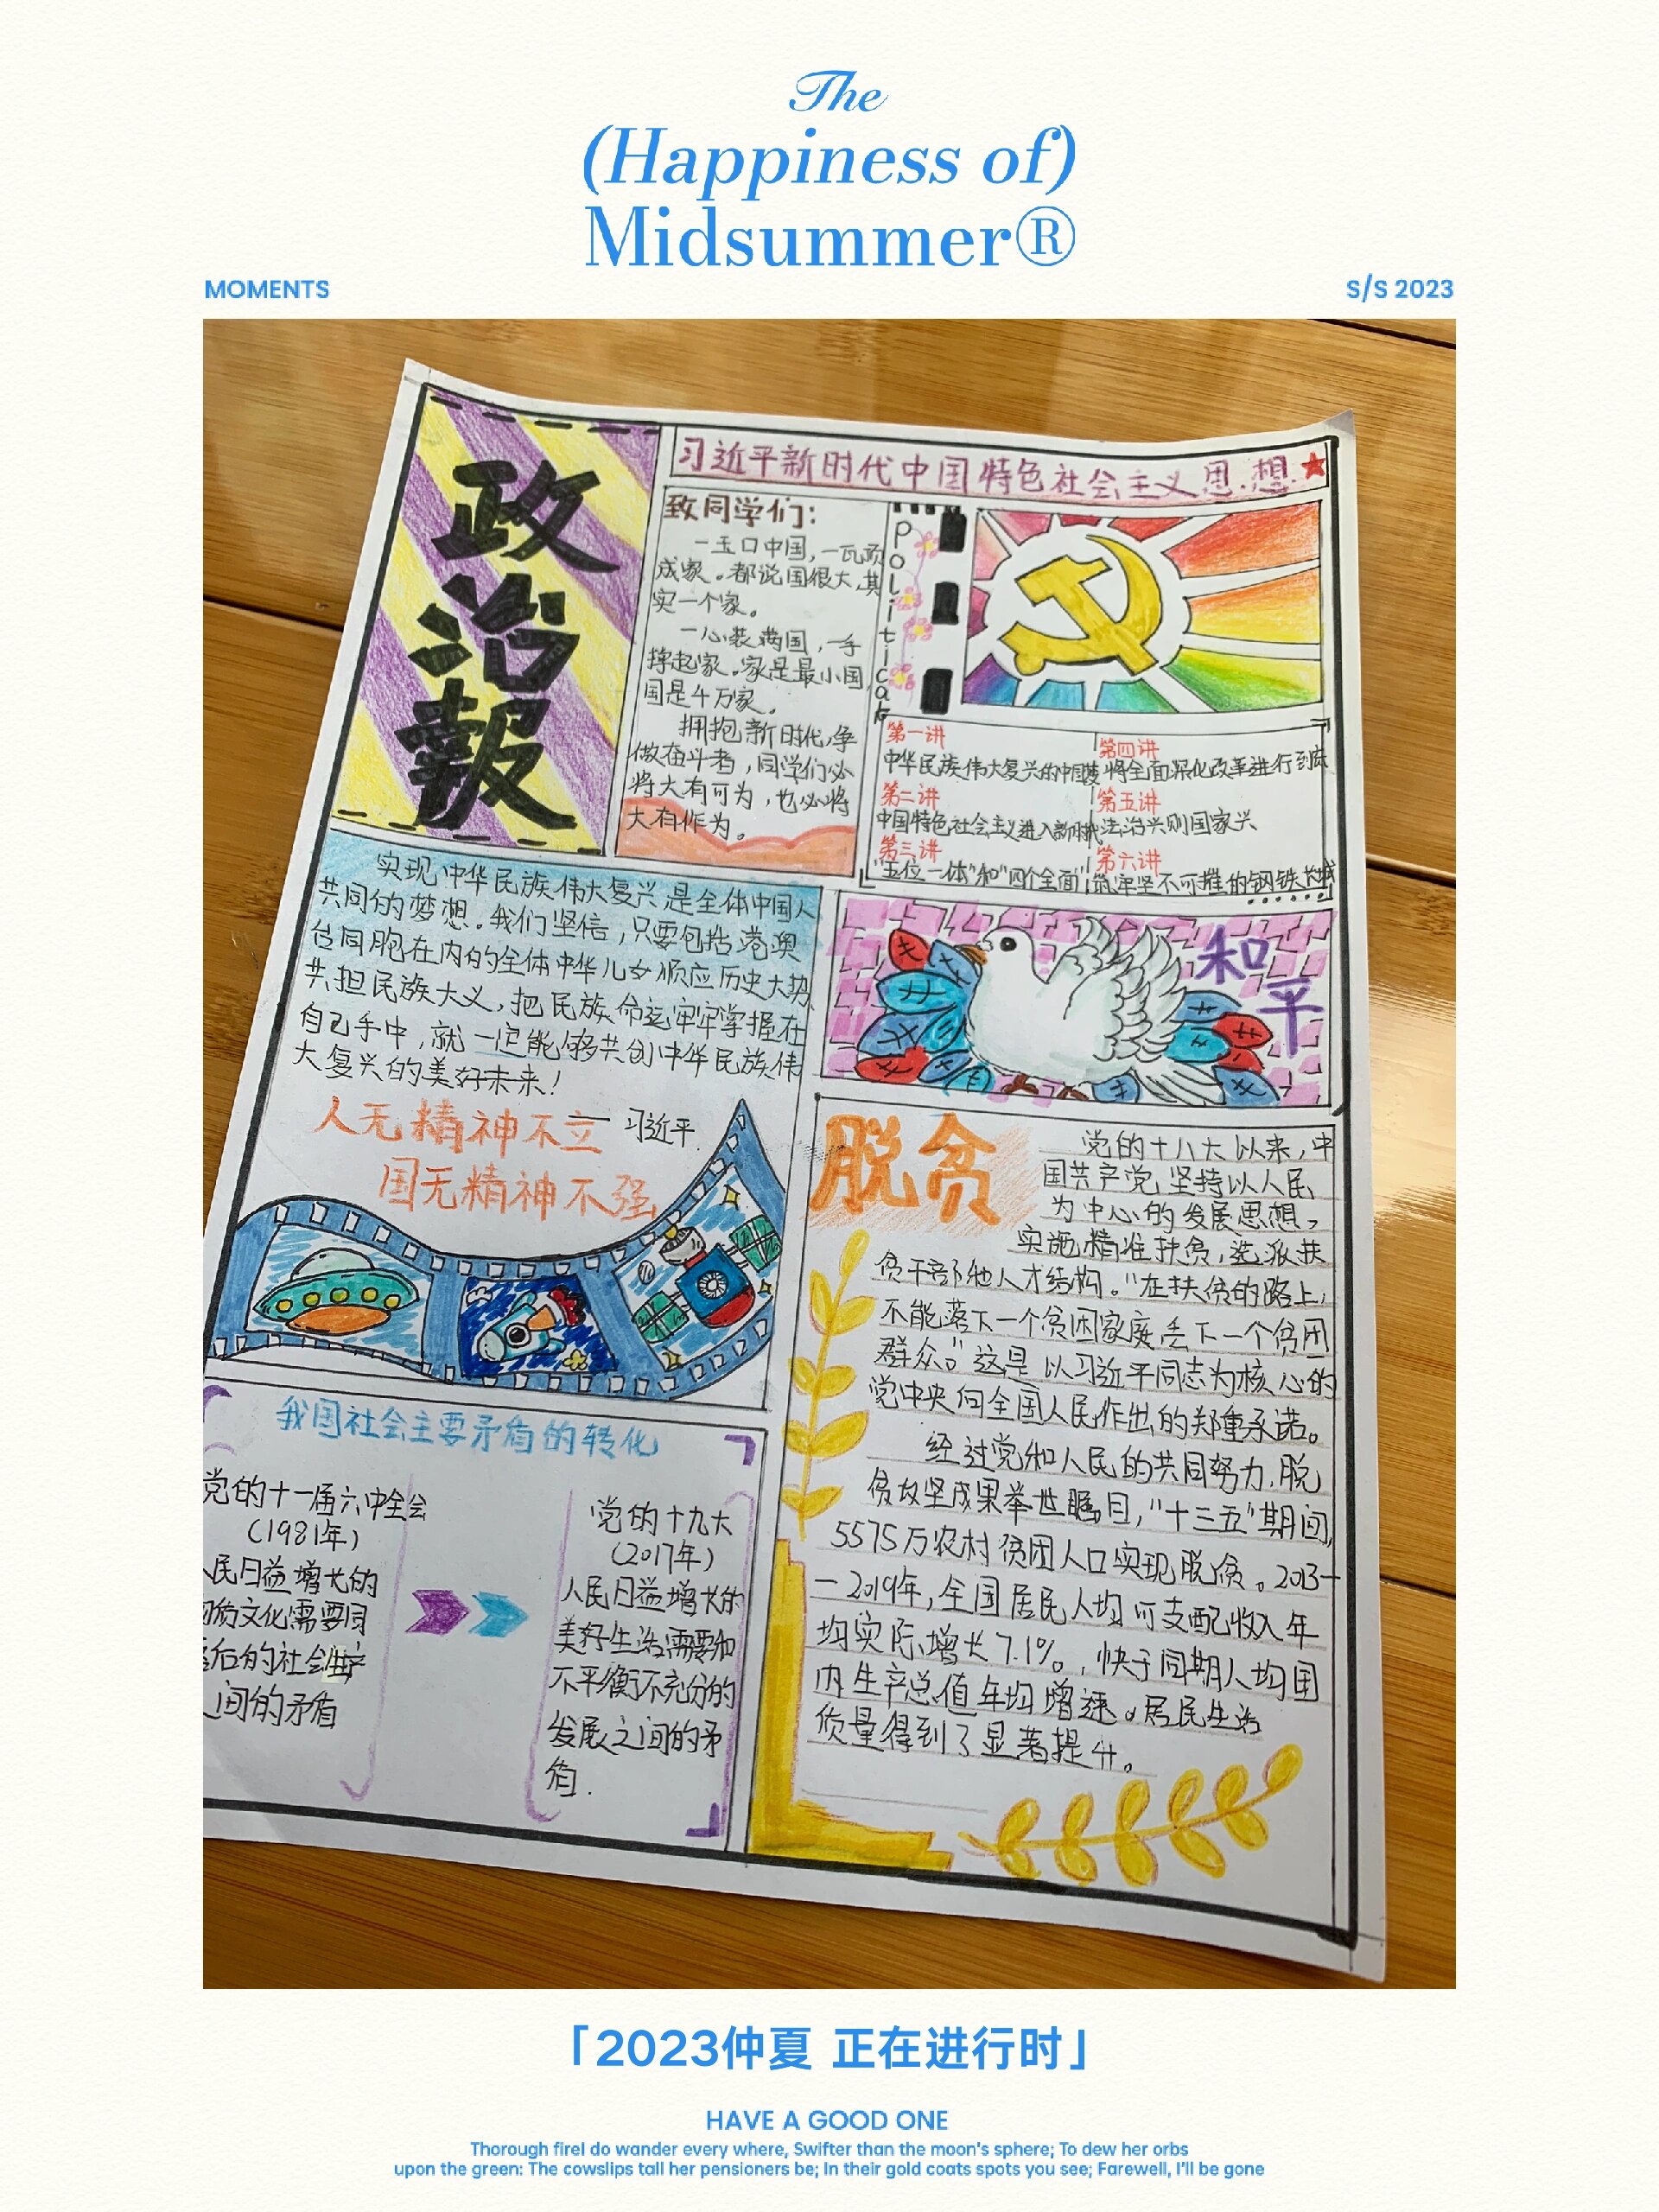 The
(Happiness of)
Midsummer®
MOMENTS
S/S 2023
政治報
习近平新时代中国特色社会主义思想
致同学们：
一玉口中国，一瓦顶
成家。都说国很大，其
实一个家。
一心装满国，一手
撑起家。家是最小国，
国是千万家。
拥抱新时代，争
做奋斗者，同学们必
将大有可为，也必将
大有作为。
political
第一讲
中华民族伟大复兴的中国梦
第二讲
中国特色社会主义进入新时代
第三讲
"五位一体"和"四个全面"
第四讲
将全面深化改革进行到底
第五讲
法治兴则国家兴
第六讲
筑牢坚不可摧的钢铁长城
实现中华民族伟大复兴是全体中国人
共同的梦想。我们坚信，只要包括港澳
台同胞在内的全体中华儿女顺应历史大势
共担民族大义，把民族命运牢牢掌握在
自己手中，就一定能够共创中华民族伟
大复兴的美好未来！
—习近平
人无精神不立
国无精神不强
和平
脱贫
党的十八大以来，中
国共产党坚持以人民
为中心的发展思想，
实施精准扶贫，选派扶
贫干部他人才结构。"在扶贫的路上，
不能落下一个贫困家庭丢下一个贫困
群众。"这是以习近平同志为核心的
党中央向全国人民作出的郑重承诺。
经过党和人民的共同努力，脱
贫攻坚成果举世瞩目，"十三五"期间，
5575万农村贫困人口实现脱贫。2013—
—2019年，全国居民人均可支配收入年
均实际增长7.1%，快于同期人均国
内生产总值年均增速。居民生活
质量得到了显著提升。
我国社会主要矛盾的转化
党的十一届六中全会
（1981年）
民日益增长的
文化需要同
后的社会生产
间的矛盾
党的十九大
（2017年）
人民日益增长的
美好生活需要和
不平衡不充分的
发展之间的矛
盾.
「2023仲夏 正在进行时」
HAVE A GOOD ONE
Thorough fireI do wander every where, Swifter than the moon's sphere; To dew her orbs
upon the green: The cowslips tall her pensioners be; In their gold coats spots you see; Farewell, I'll be gone